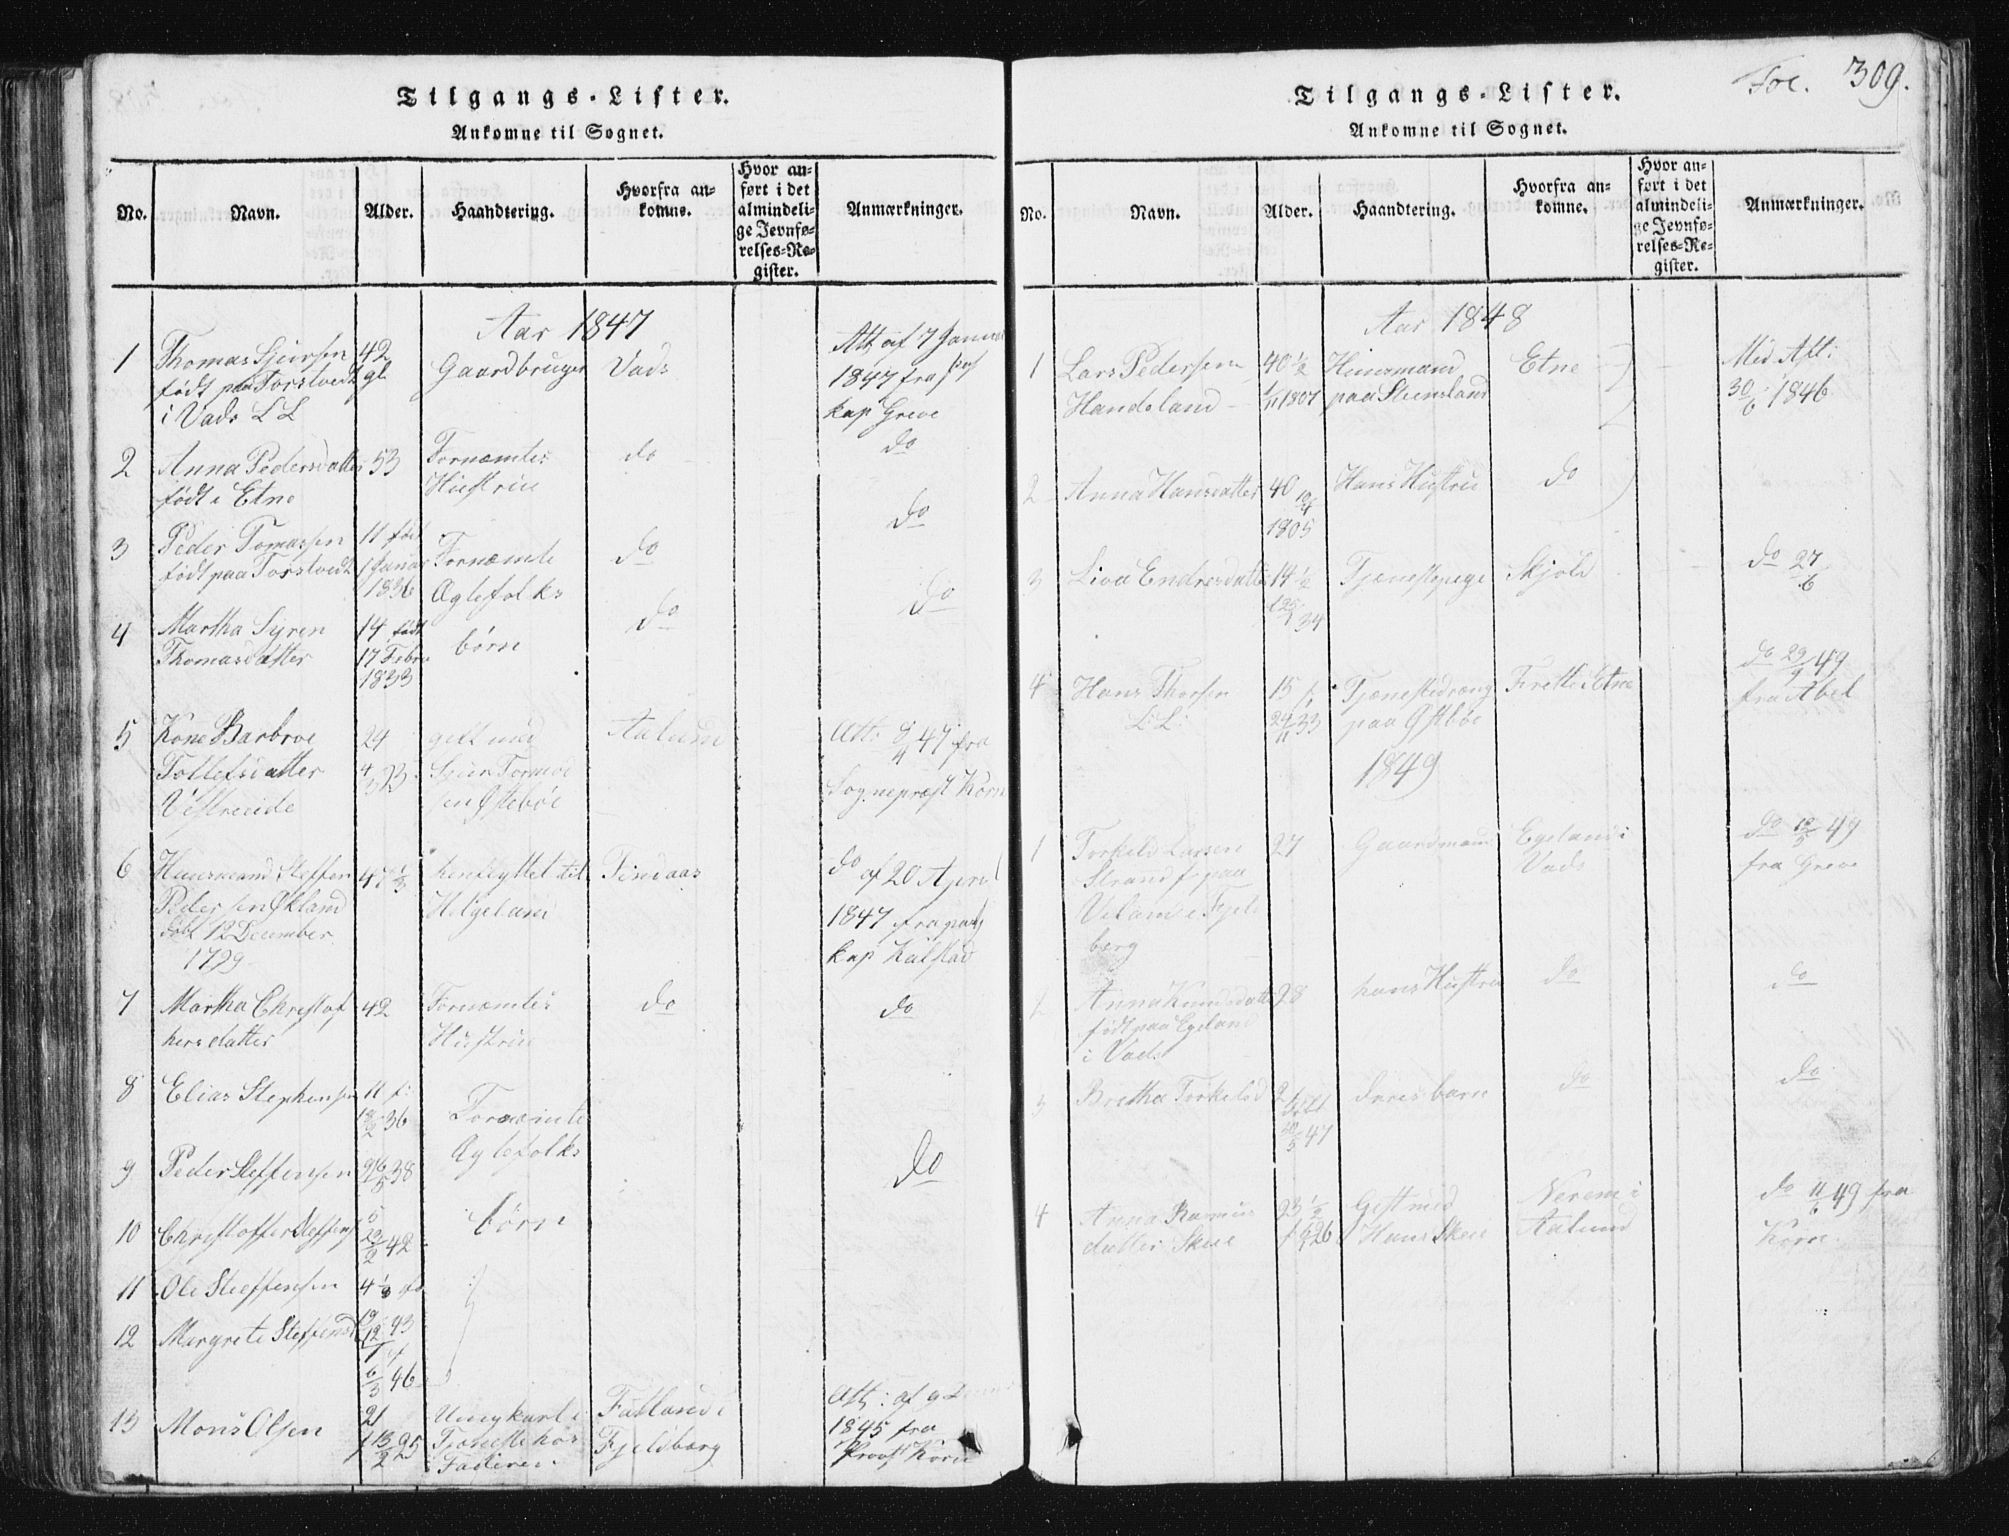 Tilgangs-Lister.
Ankomne til Sognet.
No.
Navn.
Alder.
Haandtering.
Hvorfra an-
komne.
Hvor an-
ført i det
almindeli-
ge Jevnfø-
relses-Re-
gister.
Anmærkninger.
Aar 1847
1
Thomas Sjursen
født paa Torstvedt
i Vads LL
42
gl
Gaardbruger
Vads
Att af 7 Januar
1847 fra
kap Greve
2
Anna Pedersdatter
født i Etne
53
Fornæmtes
Hustrue
do
do
3
Peder Tomassen
født paa Torstvedt
11 fød
1 Januar
1836
Fornæmte
Ægtefolks
do
do
4
Martha Syren
Thomasdatter
14 født
17 Febr
1833
børn
do
do
5
Kone Barbroe
Tollefsdatter
Vestreeide
24
gift med
Sjur Tormod
sen Østebøe
Aalund
Att: 47 fra
Sogneprest Körn
6
Huusmand Steffen
Pedersen Økland
født 12 December
1799
47 1/3
henflyttet til
Helgeland
Findaas
do af 20 April
1847 fra
kap Kalstad
7
Martha Christof
hersdatter
42
Fornæmtes
Hustrue
do
do
8
Elias Stephensen
11 f:
36
Fornæmte
Ægtefolks
9
Peder Steffensen
38
do
10
Christoffer Steffens
5
42
børn
11
Ole Steffensen
4
12
Margrete Steffensd
43
46
13
Mons Olsen
21
25
Ungkarl i
Tjeneste hos
Faderen
Fatland i
Fjeldberg
Att: af 9
1845 fra
Provst Körn
Tilgangs-Lister.
Ankomne til Sognet.
Fol. 309.
No.
Navn.
Alder.
Haandtering.
Hvorfra an-
komne.
Hvor an-
ført i det
almindeli-
ge Jevnfø-
relses-Re-
gister.
Anmærkninger.
Aar 1848
1
Lars Pedersen
Handeland
40 1/2
1807
Huusmand
paa Steensland
Etne
Med Att:
30/6 1846
2
Anna Hansdatter
40
1805
Hans Hustru
do
3
Liva Endresdatter
14 1/2
34
Tjenestepige
Skjold
do 27/6
4
Hans Thorsen
L:L:
15 f.
33
Tjenestedreng
paa Østbøe
Frette i Etne
do 29/9 49
fra Abel
1849
1
Torkild Larsen
Strand f paa
Veland i Fjeld
berg
27
Gaardmand
Egeland i
Vads
do 49
fra Greve
2
Anna Knudsdatt
født paa Egeland
i Vads
28
hans Hustru
do
do
3
Bretha Torkelsd
2
47
deres barn
do
do
4
Anna Rasmus
datter Skeie
23 1/2
26
Gift med
Hans Skeie
Nerem i
Aalund
do 11/6 49 fra
Körn